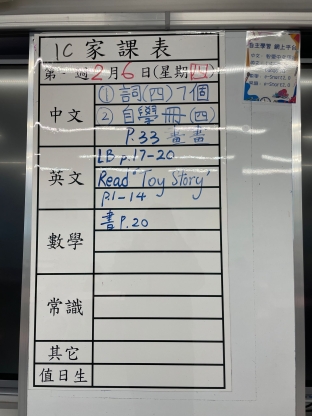 1C 家課表
第 週 2 月 6 日(星期四)
中文
① 詞(四)7個
② 自學冊(四)
P.33 書書
英文
LB p.17-20
Read "Toy Story"
p.1-14
數學
書 P.20
常識
其它
值日生
自主學習 網上平台